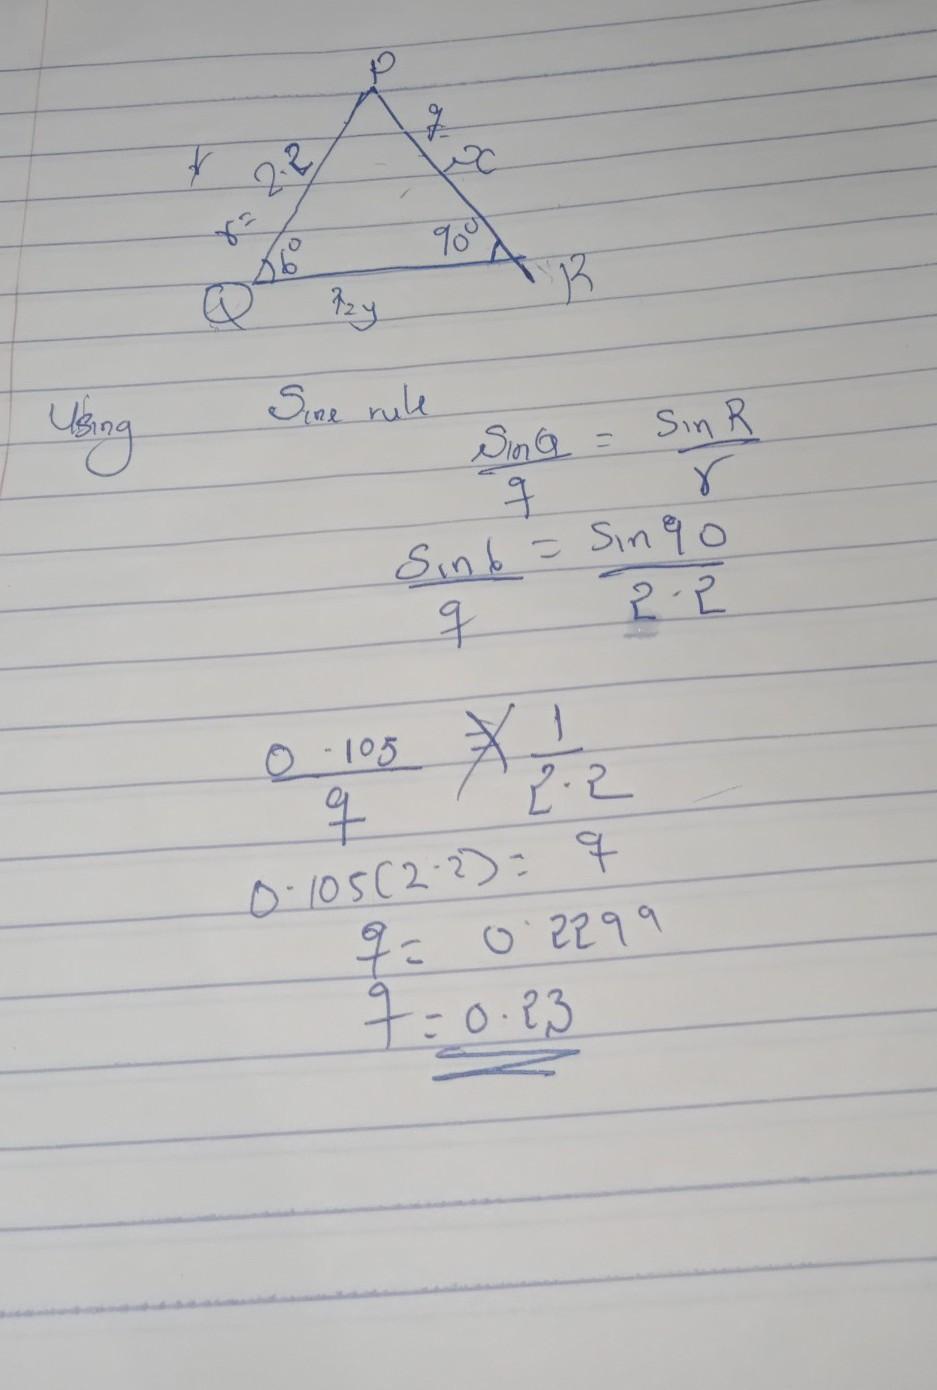 P
r 2.2 q x
r= 6° 90°
Q R
y
Using Sine rule
Sin Q / q = Sin R / r
Sin 6 / q = Sin 90 / 2.2
0.105 / q = 1 / 2.2
0.105(2.2) = q
q = 0.2299
q = 0.23